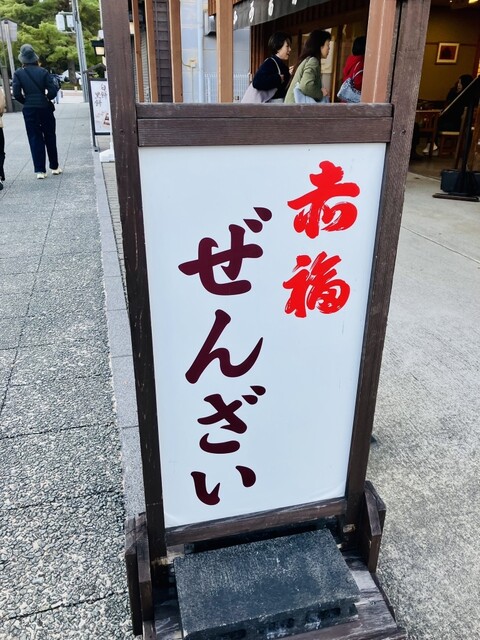 赤福
ぜんざい